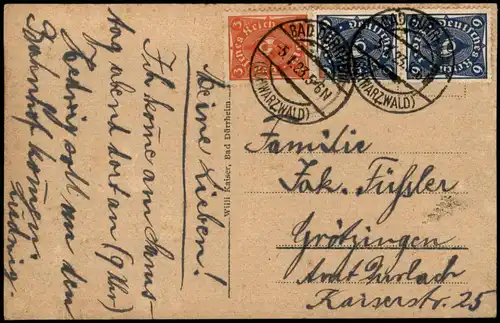 Meine Lieben!
Ich kome am Sams-
tag abent dort an (9 Uhr)
Hedwig soll an den
Bahnhof komen.
Ludwig.
Willi Kaiser, Bad Dürrheim
3 Deutsches Reich 3
6 Deutsches Reich 6
6 Deutsches Reich 6
BAD DÜRRHEIM
-5.1.23.5-6N
(SCHWARZWALD)
BAD DÜRRHEIM
(SCHWARZWALD)
Familie
Jak. Füßler
Grötzingen
Amt Durlach
Kaiserstr. 25